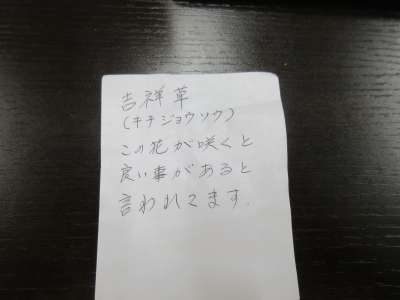 吉祥草
(キチジョウソウ)
この花が咲くと
良い事があると
言われてます.